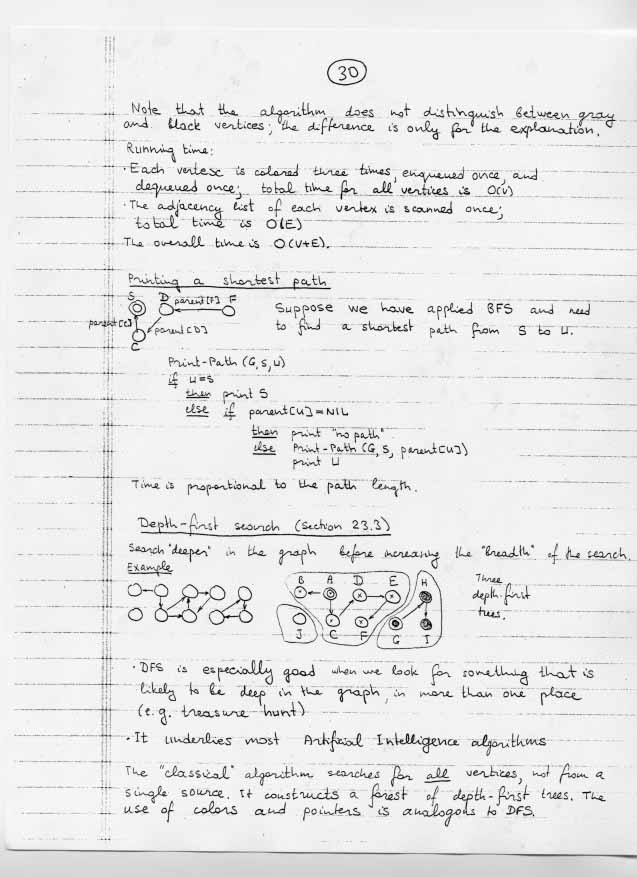 30
Note that the algorithm does not distinguish between gray
and black vertices; the difference is only for the explanation.
Running time:
· Each vertex is colored three times, enqueued once, and
dequeued once; total time for all vertices is O(V)
· The adjacency list of each vertex is scanned once;
total time is O(E)
The overall time is O(V+E).
Printing a shortest path
S D parent[F] F
parent[C] parent[D]
C
Suppose we have applied BFS and need
to find a shortest path from S to U.
Print-Path (G, S, U)
if U=S
then print S
else if parent[U]=NIL
then print "no path"
else Print-Path (G, S, parent[U])
print U
Time is proportional to the path length.
Depth-first search (section 23.3)
Search "deeper" in the graph before increasing the "breadth" of the search.
Example
B A D E H
J C F G I
Three
depth-first
trees.
· DFS is especially good when we look for something that is
likely to be deep in the graph, in more than one place
(e.g. treasure hunt)
· It underlies most Artificial Intelligence algorithms
The "classical" algorithm searches for all vertices, not from a
single source. It constructs a forest of depth-first trees. The
use of colors and pointers is analogous to DFS.